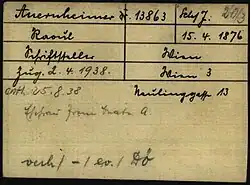 Auernheimer Nr. 13863 Schj.
Raoul 15.4.1876
Schriftsteller Wien
Zug. 2.4.1938. Wien 3
entl. 25.8.38 Neulinggasse 13
Ehefrau Irene
verh / - / ev. / DÖ